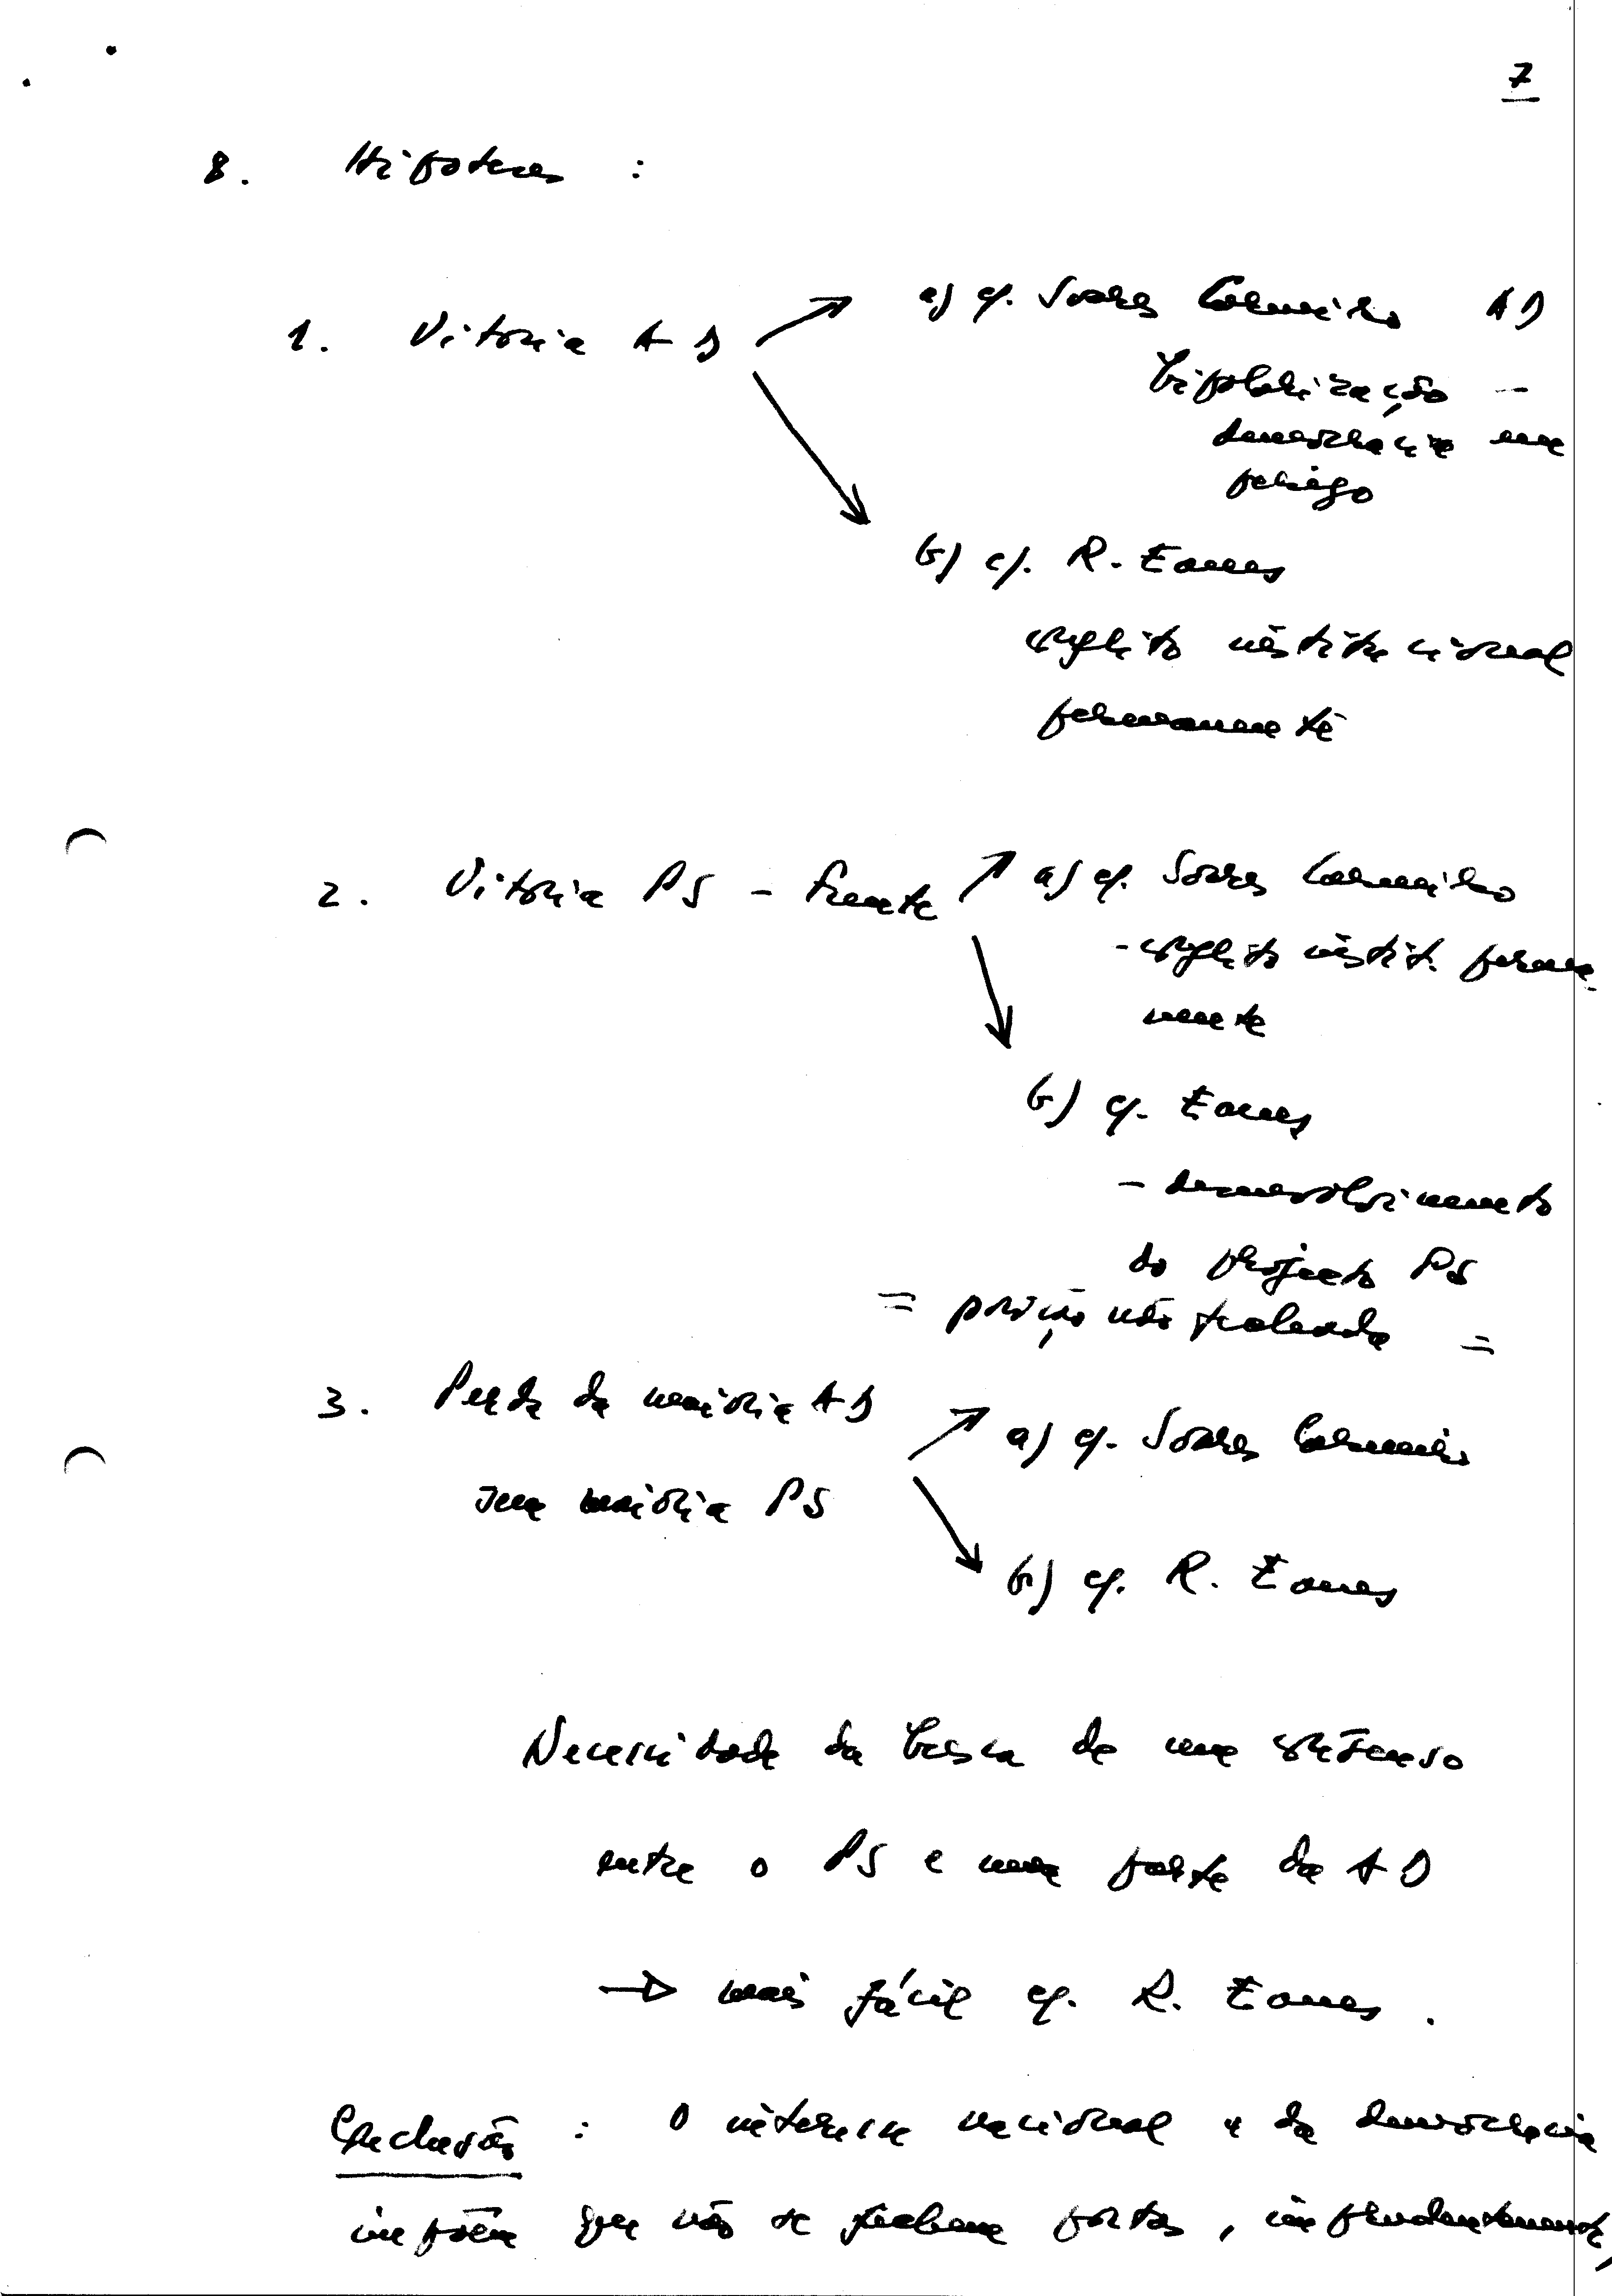 7
8. Hipoteses :
1. Vitoria AD
a) c/. Soares Carneiro AD
bipolarização -
democracia em
perigo
b) c/. R. Eanes
conflito institucional
permanente
2. Vitoria PS - Frente
a) c/. Soares Carneiro
- conflito instit. perma-
nente
b) c/. Eanes
- desenvolvimento
do projecto PS
= posição não fechada =
3. Perda da maioria AD
sem maioria PS
a) c/. Soares Carneiro
b) c/. R. Eanes
Necessidade da busca de um consenso
entre o PS e uma parte da AD
→ mais fácil c/. R. Eanes.
Conclusão : O interesse nacional e da democracia
impõem que não se fechem portas, imprudentemente,